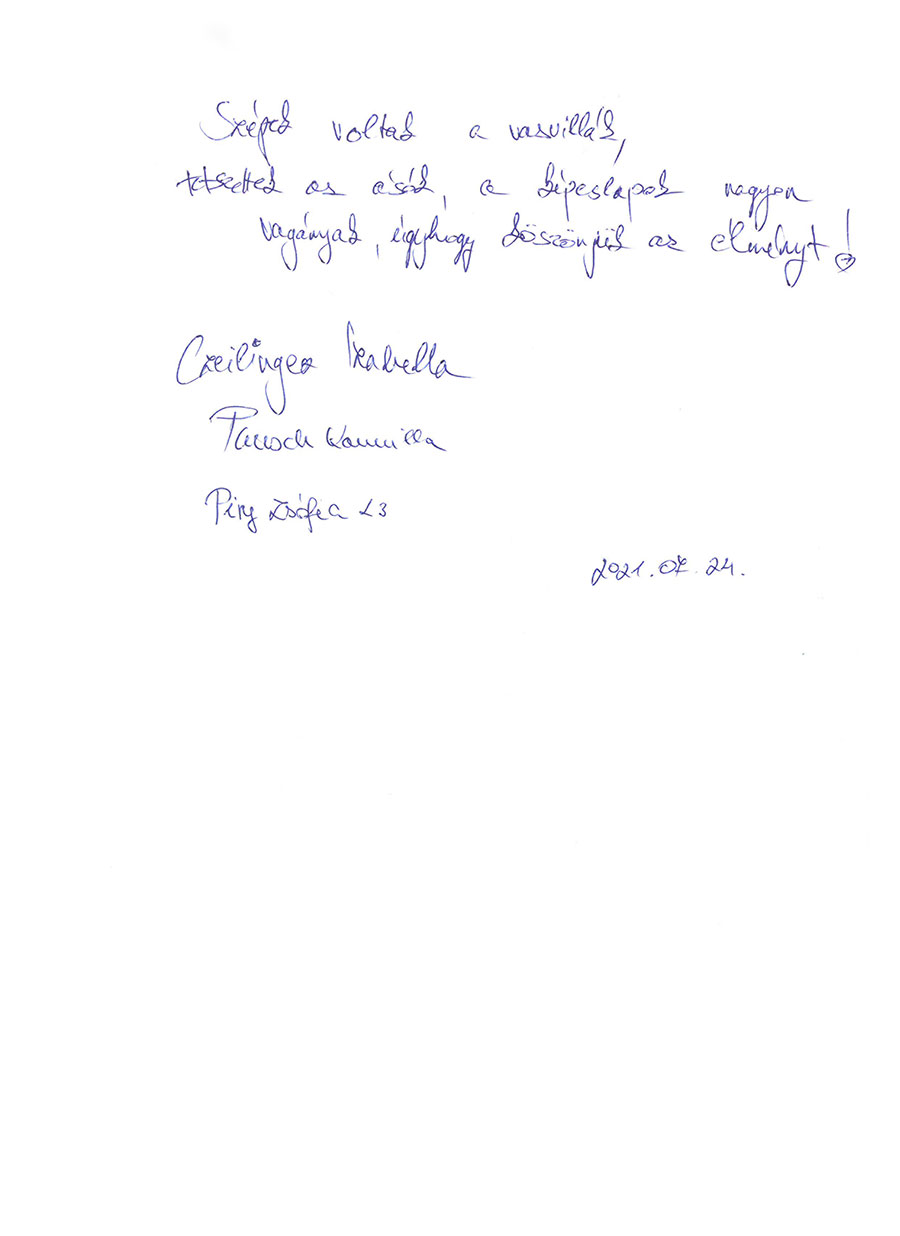 Szépek voltak a vasvillák,
tetszettek az ásók, a képeslapok nagyon
vagányak, úgyhogy köszönjük az élményt!
Czeilinger Izabella
Kamilla
Piry Zsófia <3
2021.07.24.